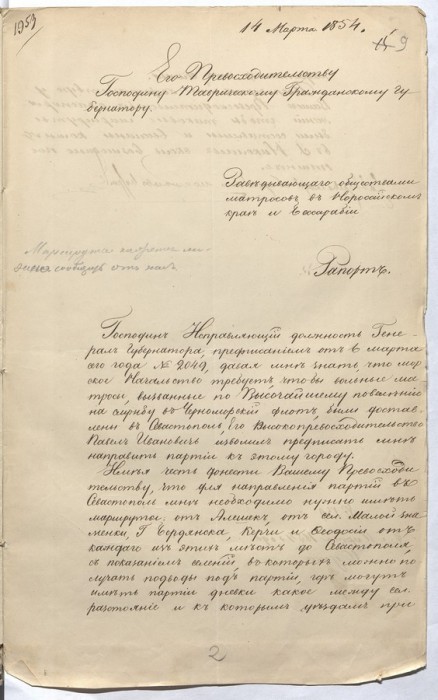 1959
14 Марта 1854.
9
Его Превосходительству
Господину Таврическому Гражданскому Гу-
бернатору.
Заведывающаго обществами
матросовъ въ Новоросійскомъ
краѣ и Бессарабіи
Рапортъ.
Господинъ Исправляющій должность Гене-
ралъ Губернатора, предписаніемъ отъ 6 марта
сего года № 2049, давая мнѣ знать, что мор-
ское Начальство требуетъ что бы вольные ма-
тросы, вызванные по Высочайшему повелѣнію
на службу въ Черноморскій флотъ, были достав-
лены въ Севастополь, Его Высокопревосходительство
Павелъ Ивановичъ изволилъ предписать мнѣ
направить партіи къ этому городу.
Имѣя честь донести Вашему Превосходи-
тельству, что для направленія партій въ
Севастополь мнѣ необходимо нужно имѣть
маршруты: отъ Алешекъ, отъ сел. Малой Зна-
менки, Г. Бердянска, Керчи и Феодосіи отъ
каждаго изъ этихъ мѣстъ до Севастополя,
съ показаніемъ селеній, въ которыхъ можно по-
лучать подводы подъ партіи, гдѣ могутъ
имѣть партіи дневки какое между сел.
разстояніе и къ которымъ уѣздамъ при
2